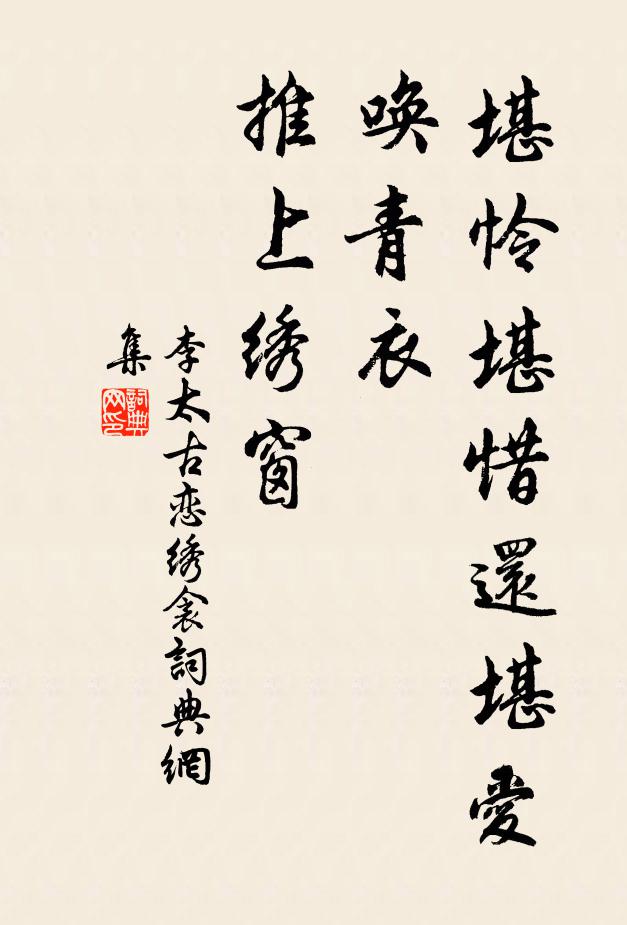 堪怜堪惜還堪愛
喚青衣
推上绣窗
李太古恋绣衾詞典網
集
詞典
网印